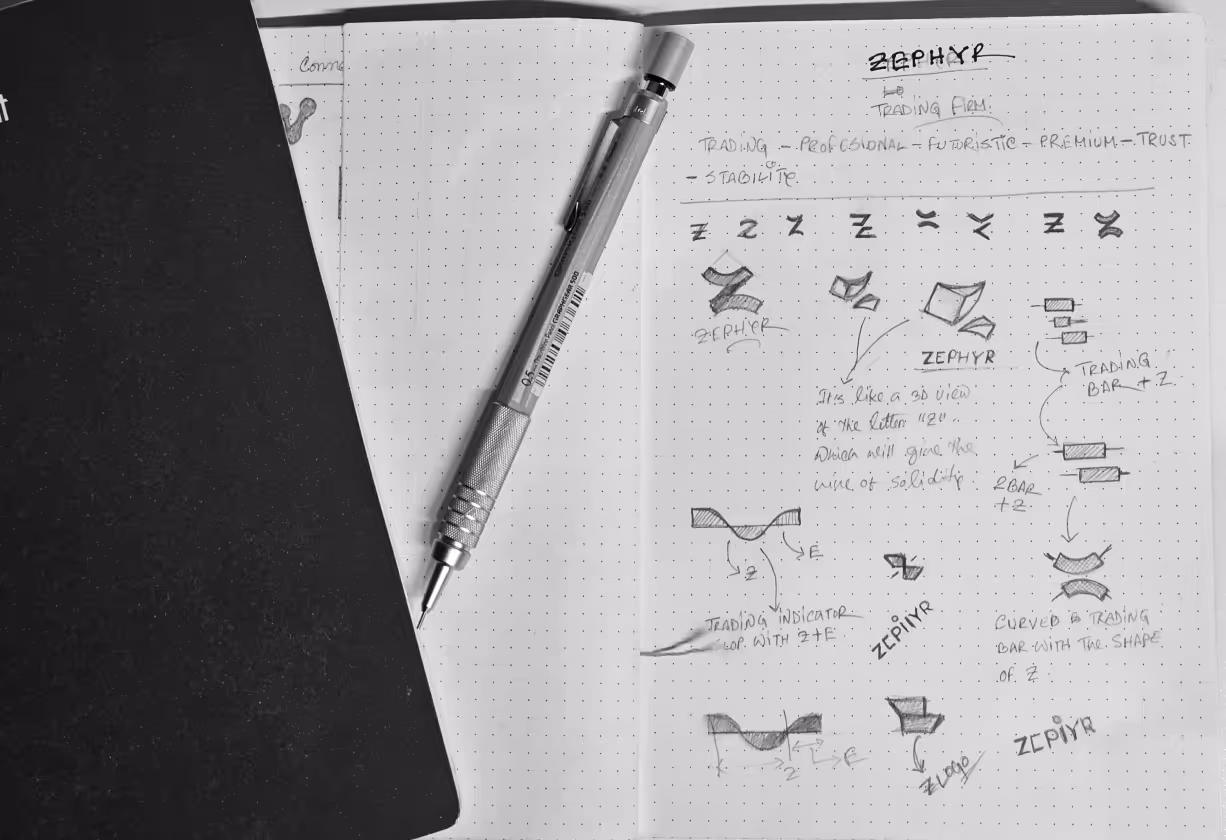 Conne
ZEPHYR
TRADING FIRM.
TRADING - PROFESIONAL - FUTURISTIC - PREMIUM - TRUST
- STABILITY.
ZEPHYR
ZEPHYR
TRADING
BAR + Z
It's like a 3D view
of the letter "Z".
Which will give the
of solidity.
2 BAR
+ Z
Z
E
TRADING INDICATOR
WITH Z+E
CURVED TRADING
BAR WITH THE SHAPE
OF Z
Z
E
Z LOGO
0.5
GRAPHGEAR 500